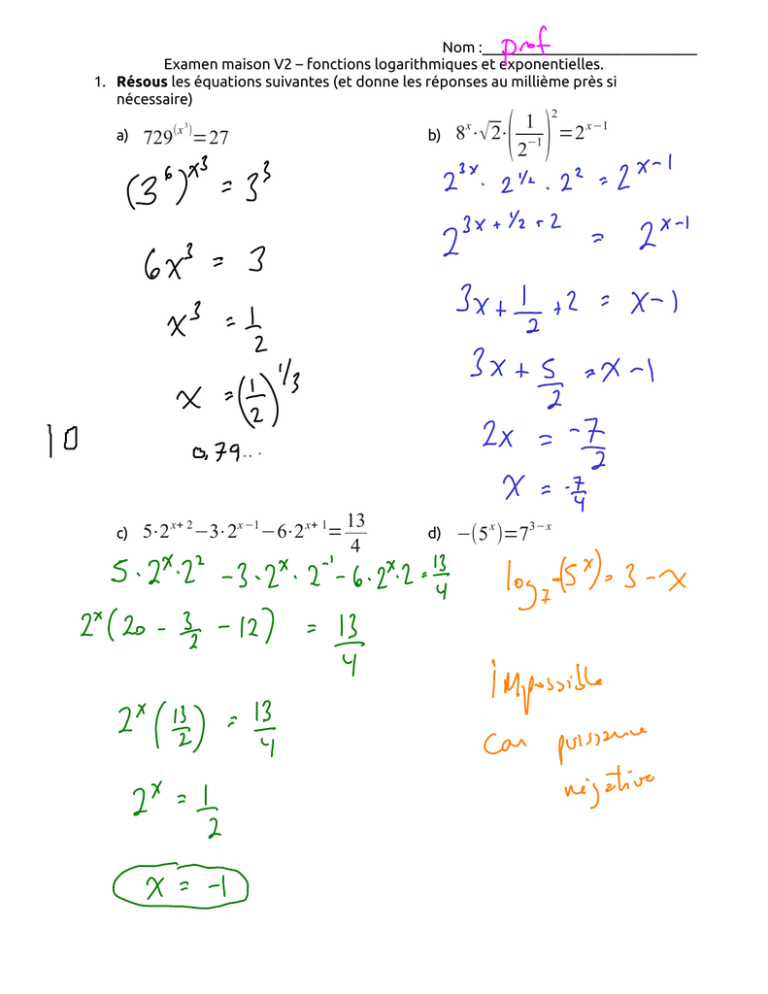 Nom : prof
Examen maison V2 – fonctions logarithmiques et exponentielles.
1. Résous les équations suivantes (et donne les réponses au millième près si
nécessaire)
a) 729^(x^3)=27
(3^6)^x^3 = 3^3
6x^3 = 3
x^3 = 1/2
x = (1/2)^1/3
0,79...
10
b) 8^x·√2·(1/2^−1)^2=2^x−1
2^3x · 2^1/2 · 2^2 = 2^x-1
2^3x + 1/2 + 2 = 2^x-1
3x + 1/2 + 2 = x-1
3x + 5/2 = x-1
2x = -7/2
x = -7/4
c) 5·2^x+2−3·2^x−1−6·2^x+1=13/4
5·2^x·2^2 -3·2^x·2^-1-6·2^x·2=13/4
2^x(20 - 3/2 - 12) = 13/4
2^x(13/2) = 13/4
2^x = 1/2
x = -1
d) −(5^x)=7^3−x
log_7 -(5^x) = 3-x
impossible
car puissance
négative